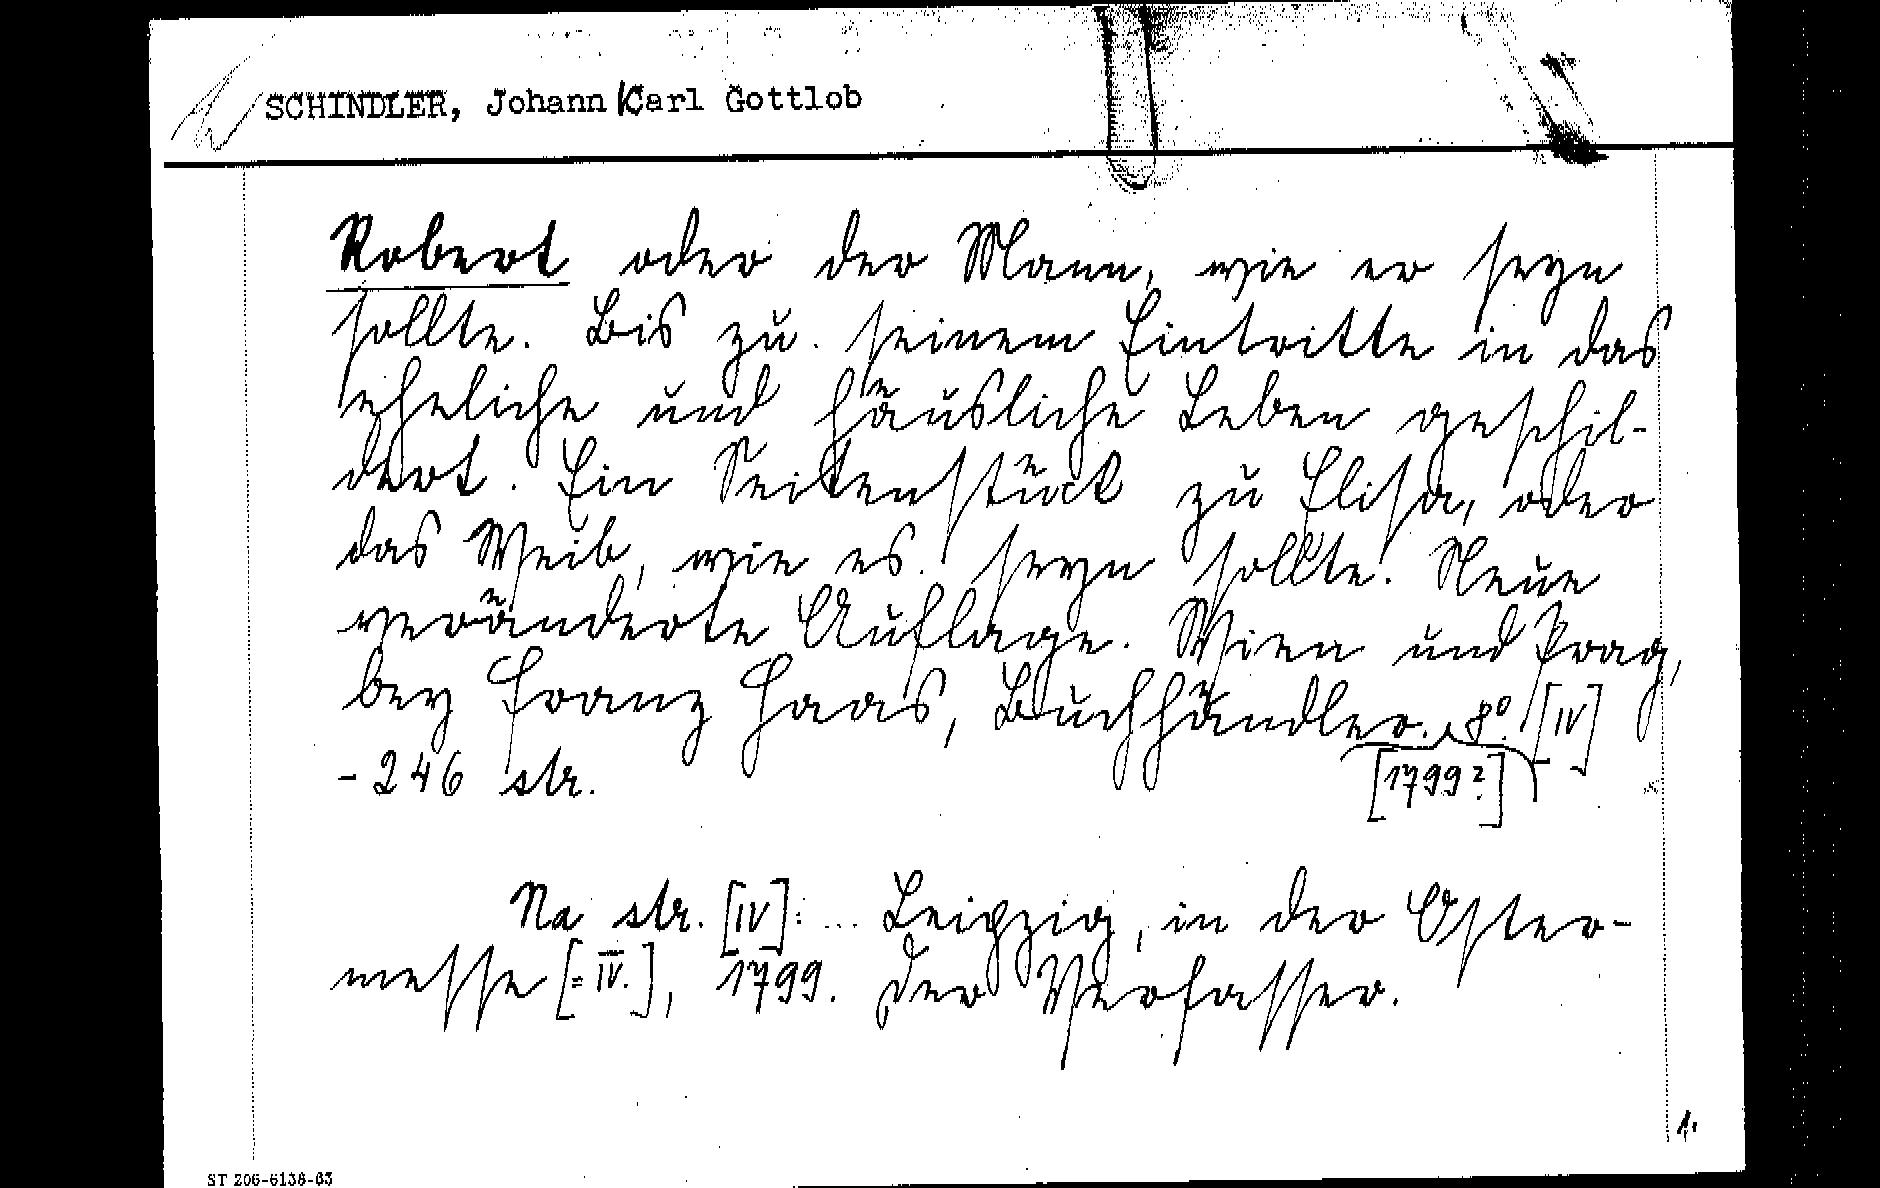 SCHINDLER, Johann Karl Gottlob
Robert oder der Mann, wie er seyn
sollte. Bis zu seinem Eintritte in das
eheliche und häusliche Leben geschil-
dert. Ein Seitenstück zu Elisa, oder
das Weib, wie es seyn sollte. Neue
veränderte Auflage. Wien und Prag,
bey Franz Haas, Buchhändler. 8° [IV]
[1799?]
-246 str.
Na str. [IV]: ... Leipzig, in der Oster-
messe [= IV.], 1799. Der Verfasser.
1.
ST 206-6138-63